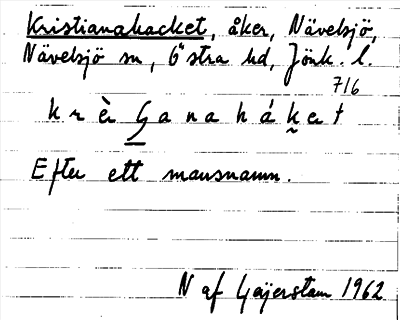 Kristianahacket, åker, Nävelsjö,
Nävelsjö sn, Östra hd, Jönk. l.
716
krèGanaháket
Efter ett mansnamn.
N af Geijerstam 1962